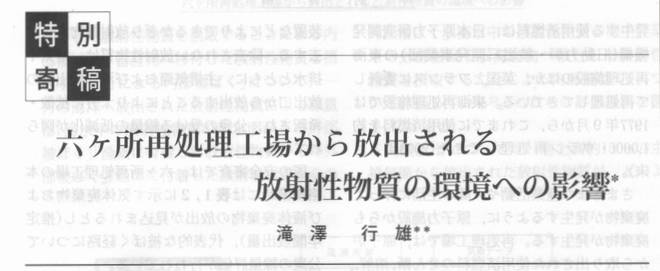 特別
寄稿
六ケ所再処理工場から放出される
放射性物質の環境への影響*
滝澤 行雄**